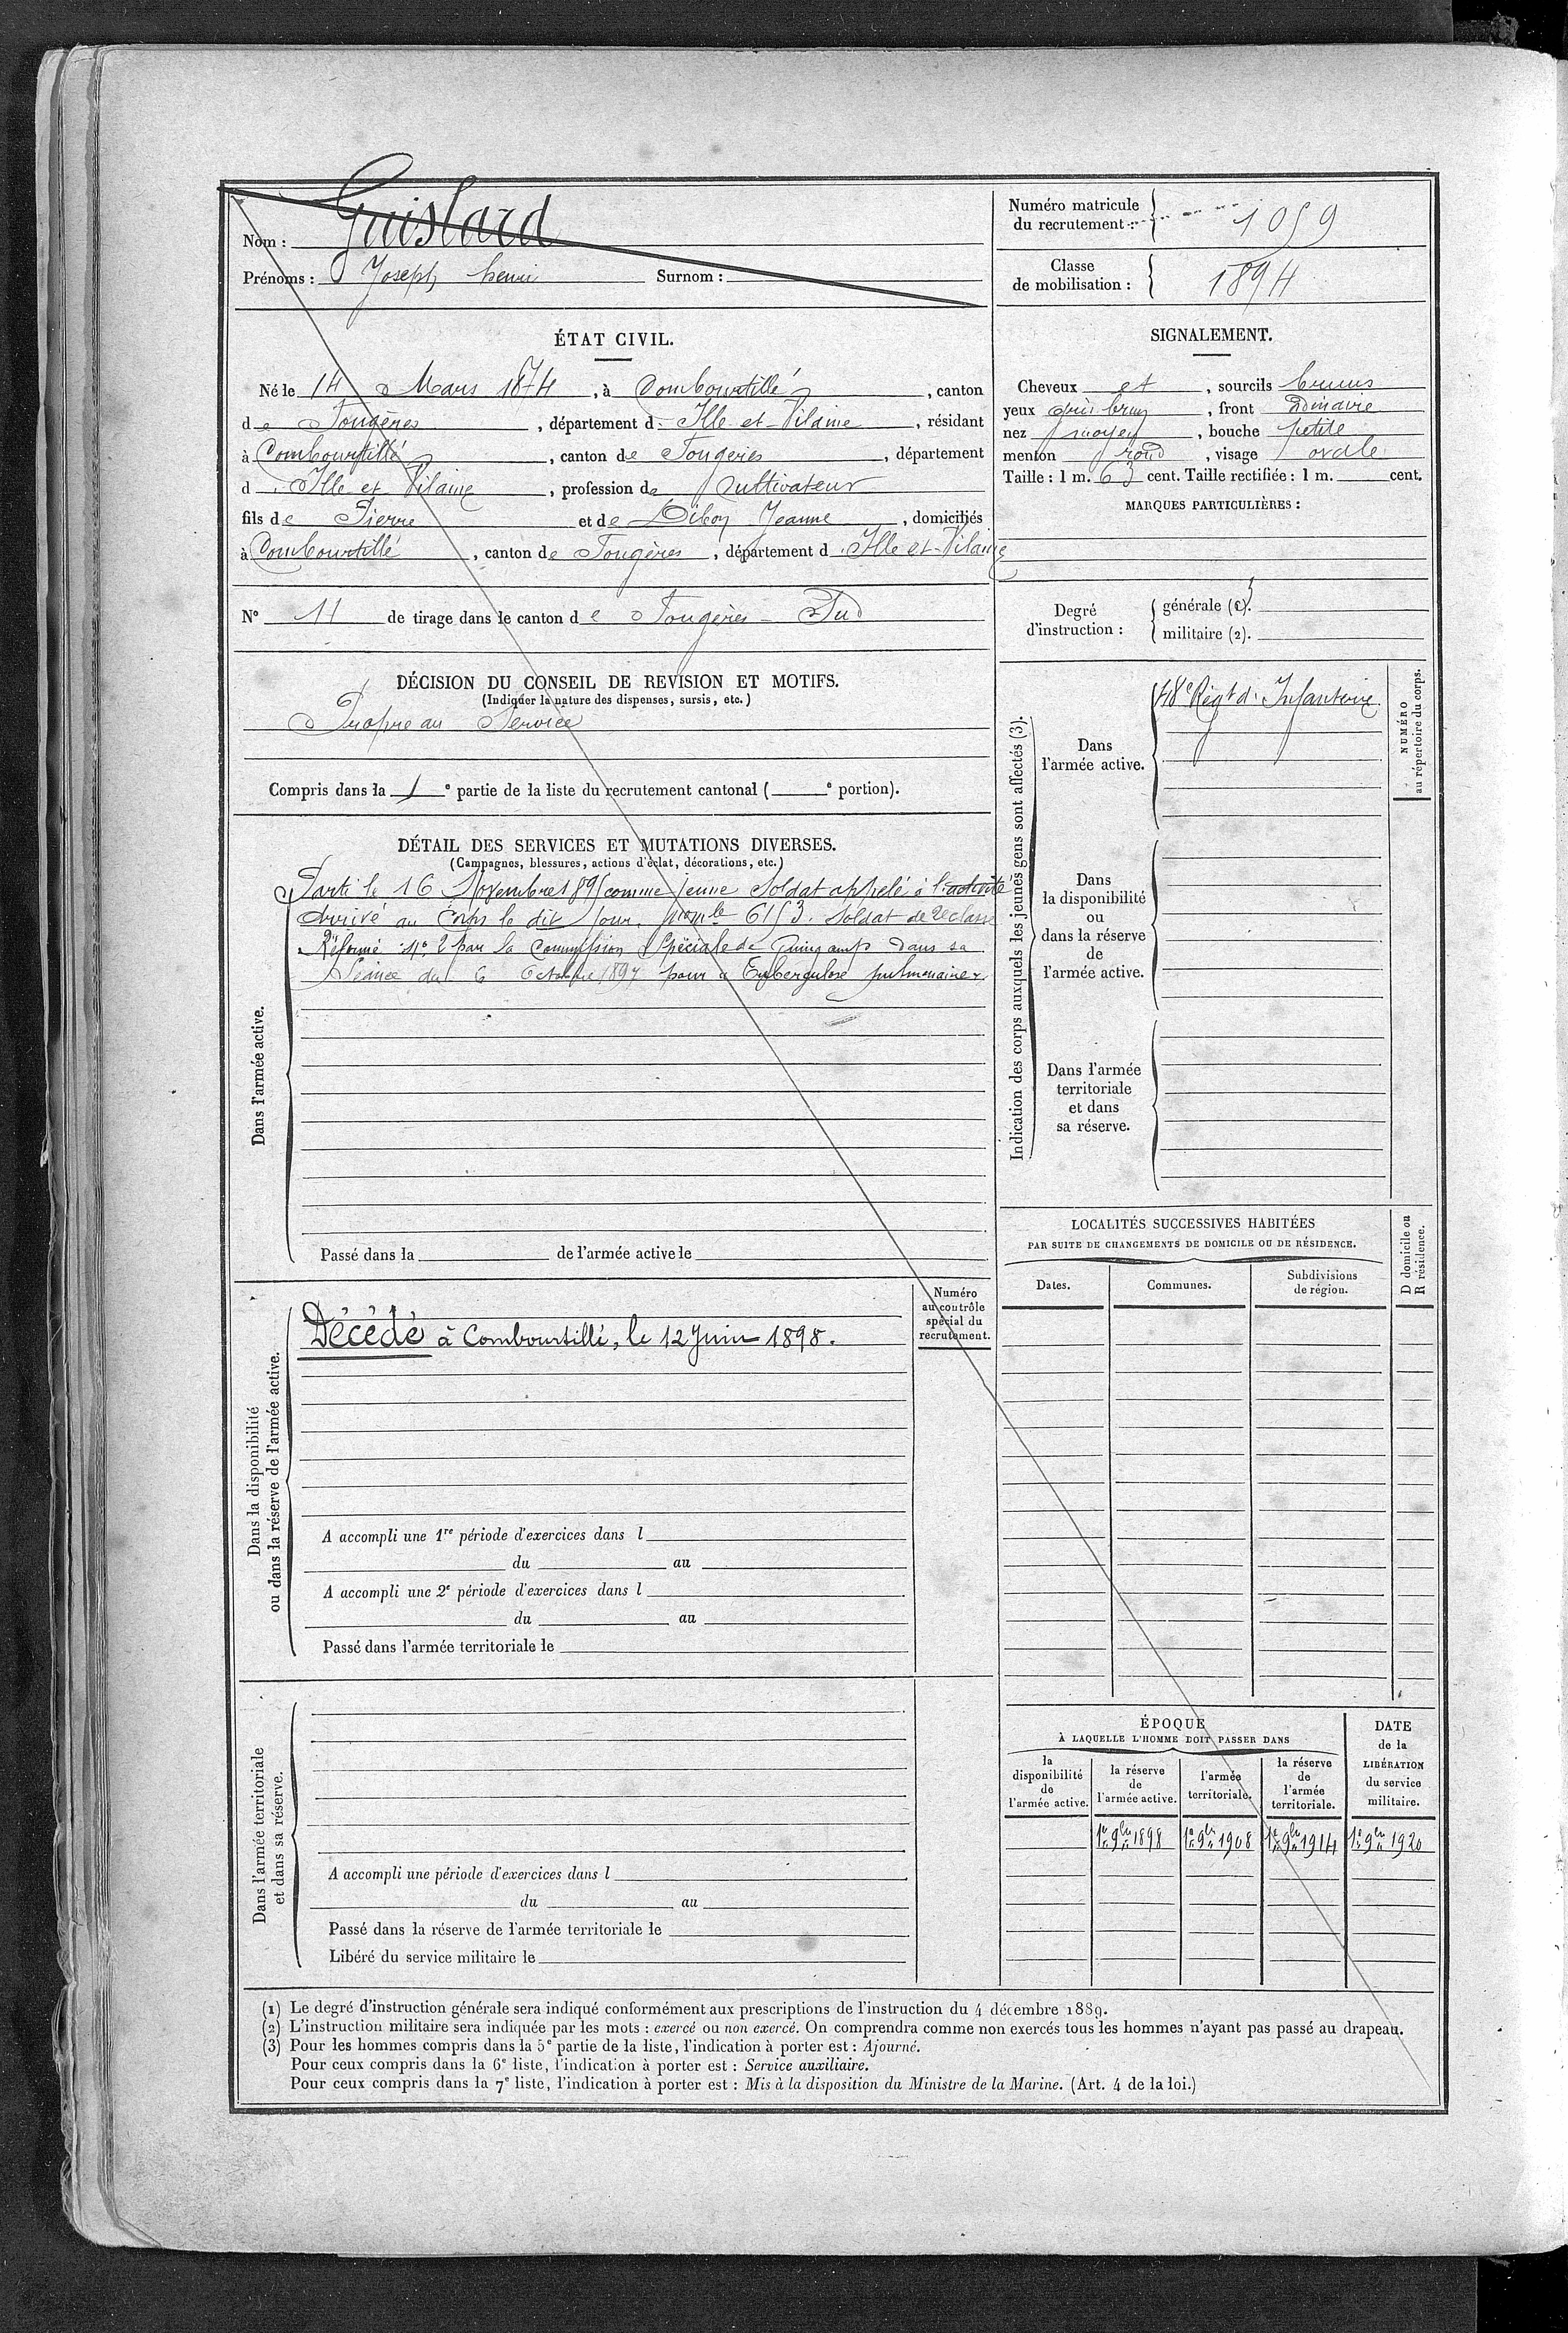 Nom : Guislard
Prénoms : Joseph henri Surnom :
Numéro matricule du recrutement : 1059
Classe de mobilisation : 1894
ÉTAT CIVIL.
Né le 14 Mars 1874, à Combourtillé, canton
de Fougères, département d. Ille-et-Vilaine, résidant
à Combourtillé, canton de Fougères, département
d. Ille et Vilaine, profession de Cultivateur
fils de Pierre et de Jeanne, domiciliés
à Combourtillé, canton de Fougères, département d. Ille et-Vilaine
N° 11 de tirage dans le canton de Fougères - Sud
SIGNALEMENT.
Cheveux et, sourcils bruns
yeux gris brun, front Ordinaire
nez moyen, bouche petite
menton rond, visage ovale
Taille : 1 m. 63 cent. Taille rectifiée : 1 m. cent.
MARQUES PARTICULIÈRES :
Degré d'instruction :
générale (1).
militaire (2).
DÉCISION DU CONSEIL DE REVISION ET MOTIFS.
(Indiquer la nature des dispenses, sursis, etc.)
Propre au Service
Compris dans la 1e partie de la liste du recrutement cantonal ( e portion).
DÉTAIL DES SERVICES ET MUTATIONS DIVERSES.
(Campagnes, blessures, actions d'éclat, décorations, etc.)
Dans l'armée active.
Parti le 16 Novembre 1895 comme jeune Soldat appelé à l'activité
Arrivé au Corps le dit Jour. no mle 6153. Soldat de 2e classe
Réformé no 2 par la Commission Spéciale de Guingamp dans sa
Séance du 6 Octobre 1897 pour "Tuberculose pulmonaire"
Passé dans la de l'armée active le
Indication des corps auxquels les jeunes gens sont affectés (3).
Dans l'armée active.
48e Régt d'Infanterie
Dans la disponibilité ou dans la réserve de l'armée active.
Dans l'armée territoriale et dans sa réserve.
NUMÉRO au répertoire du corps.
LOCALITÉS SUCCESSIVES HABITÉES
PAR SUITE DE CHANGEMENTS DE DOMICILE OU DE RÉSIDENCE.
Dates. Communes. Subdivisions de région.
D domicile ou R résidence.
Dans la disponibilité ou dans la réserve de l'armée active.
Numéro au contrôle spécial du recrutement.
Décédé à Combourtillé, le 12 Juin 1898.
A accompli une 1re période d'exercices dans l
du au
A accompli une 2e période d'exercices dans l
du au
Passé dans l'armée territoriale le
Dans l'armée territoriale et dans sa réserve.
A accompli une période d'exercices dans l
du au
Passé dans la réserve de l'armée territoriale le
Libéré du service militaire le
ÉPOQUE
À LAQUELLE L'HOMME DOIT PASSER DANS
la disponibilité de l'armée active.
la réserve de l'armée active.
l'armée territoriale.
la réserve de l'armée territoriale.
DATE de la LIBÉRATION du service militaire.
1er 9bre 1898 1er 9bre 1908 1er 9bre 1914 1er 9bre 1920
(1) Le degré d'instruction générale sera indiqué conformément aux prescriptions de l'instruction du 4 décembre 1889.
(2) L'instruction militaire sera indiquée par les mots : exercé ou non exercé. On comprendra comme non exercés tous les hommes n'ayant pas passé au drapeau.
(3) Pour les hommes compris dans la 5e partie de la liste, l'indication à porter est : Ajourné.
Pour ceux compris dans la 6e liste, l'indication à porter est : Service auxiliaire.
Pour ceux compris dans la 7e liste, l'indication à porter est : Mis à la disposition du Ministre de la Marine. (Art. 4 de la loi.)